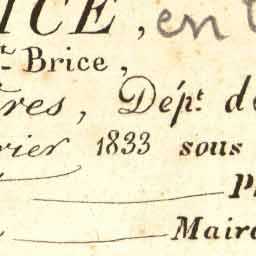 ICE, en
r. Brice,
res, Dépt. de
rier 1833 sous
P
Maire